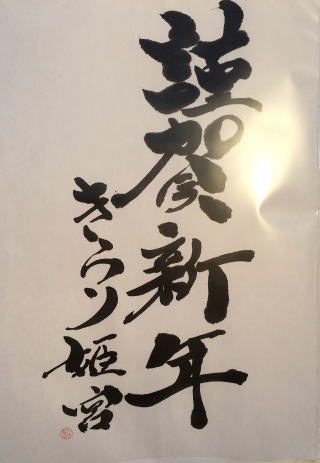 謹賀新年
きらり姫宮